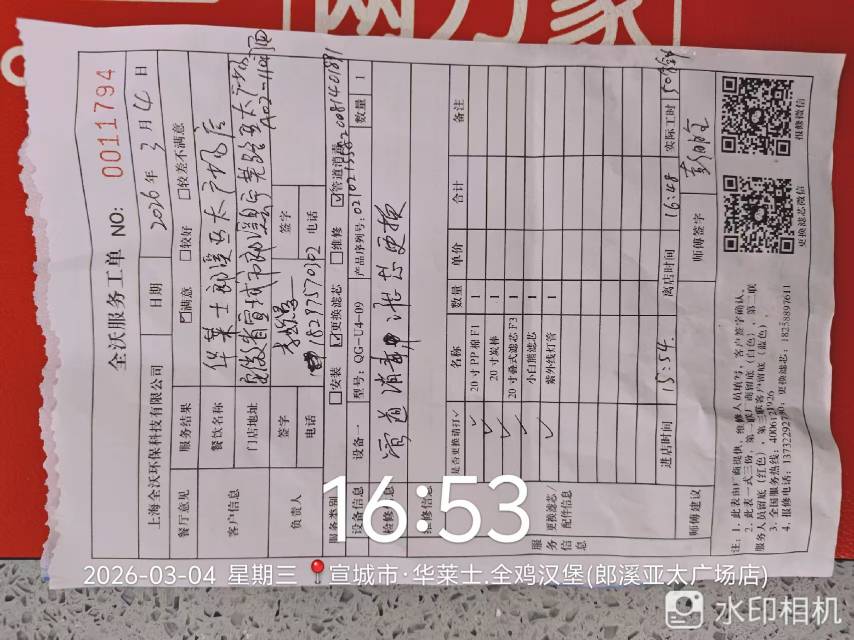 全沃服务工单 NO: 0011794
上海全沃环保科技有限公司 日期 2026年3月4日
餐厅意见 服务结果 ☑满意 □较好 □较差不满意
客户信息 餐饮名称 华莱士郎溪亚太广场店
门店地址 安徽省宣城市郎溪县
亚太广场
A02-110
负责人 签字 签字
电话 18297570102 电话
服务类别 □安装 ☑更换滤芯 □维修 ☑管道消毒
设备信息 设备一 型号: QG-U4-09 产品序列号: 数量 1
检修信息 管道消毒 滤芯更换
维修信息
服务信息 更换滤芯/配件信息 是否更换请打✓ 名称 数量 单价 合计 备注
✓ 20寸PP棉F1 1
✓ 20寸炭棒 1
✓ 20寸叠式滤芯F3 1
小白熊滤芯 1
✓ 紫外线灯管 1
进店时间 15:54 离店时间 16:48 实际工时 50分钟
师傅建议 师傅签字
注: 1、此表由厂商提供, 维修人员填写, 客户签字确认,
2、此表一式三份, 第一联厂商留底(白色), 第二联
服务人员留底(红色), 第三联客户留底(蓝色),
3、全国服务热线: 4006121926
4、报修电话: 更换滤芯: 18258897611
更换滤芯微信
报修微信
16:53
2026-03-04 星期三 宣城市·华莱士.全鸡汉堡(郎溪亚太广场店)
水印相机